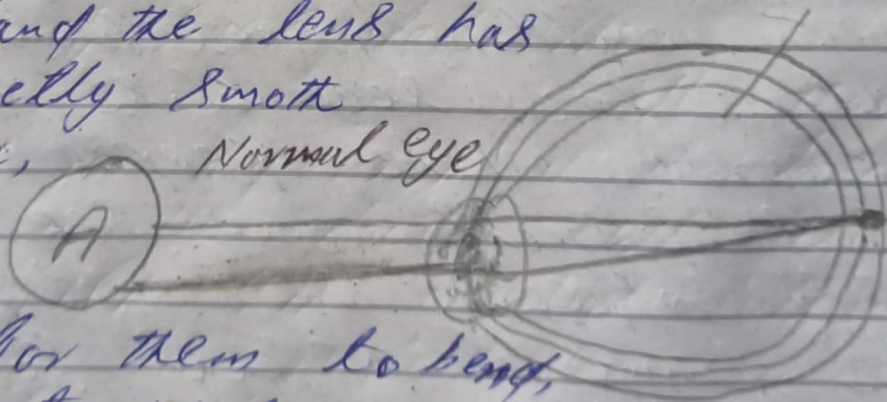 and the lens has
etly smoth
Normal eye
A
for them to bend,